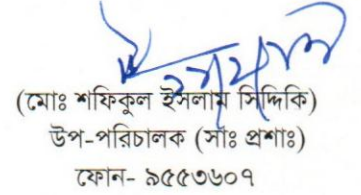 (মোঃ শফিকুল ইসলাম সিদ্দিকি)
উপ-পরিচালক (সাঃ প্রশাঃ)
ফোন- ৯৫৫৩৬০৭